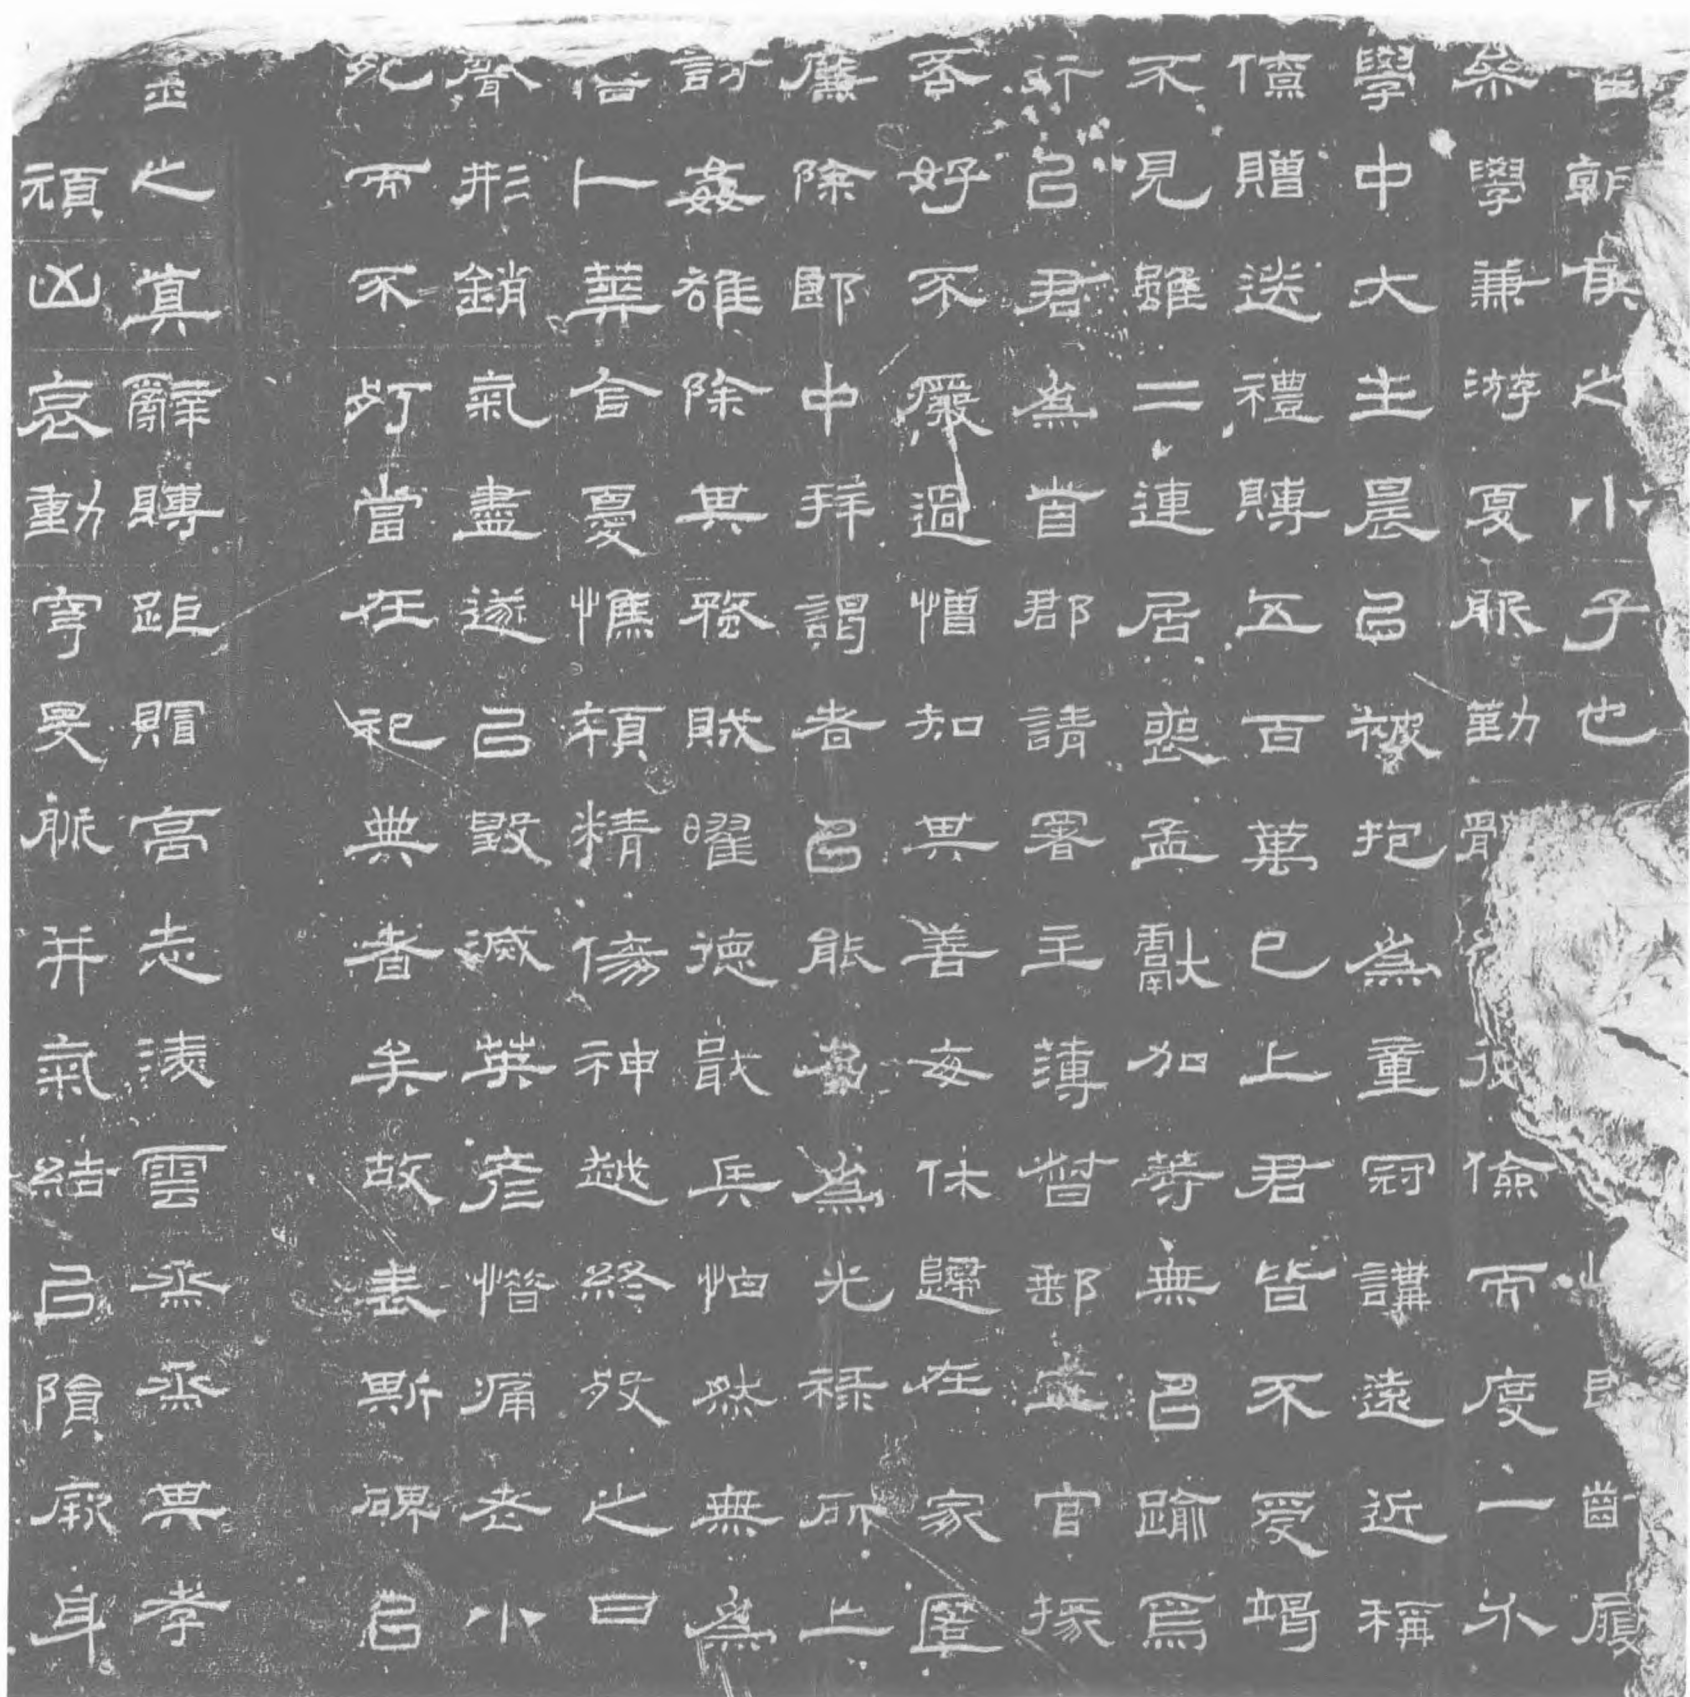 朝侯之小子也齒履
學兼游夏服勤體儉而度一介
學中大主晨以被抱為童冠講遠近稱
僖贈送禮賻五百萬已上君皆不受竭
不見雖二連居喪孟獻加等無以踰焉
行以君為首郡請署主薄督郵五官掾
否好不廢過憎知其善每休歸在家匿
廉除郎中拜謁者以能名為光祿所上
討姦雄除其蝥賊曜德戢兵怕然無為
咎卜葬含憂憔顇精傷神越終歿之日
聲形銷氣盡遂以毀滅英彥惜痛老小
死而不朽當在祀典者矣故表斯碑以
之真辭賻距賵高志凌雲烝烝其孝
頑凶哀動穹旻脈并氣結以隕厥身